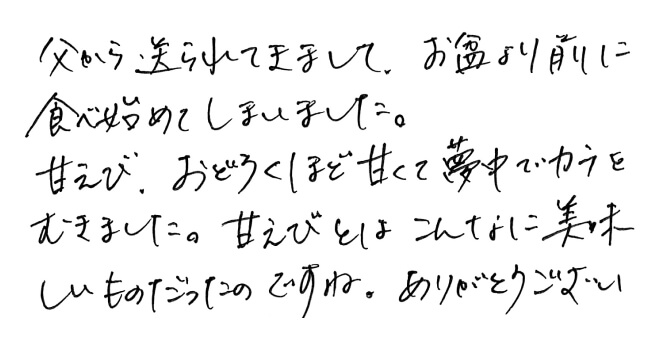 父から送られてきまして、お盆より前に
食べ始めてしまいました。
甘えび、おどろくほど甘くて夢中でカラを
むきました。甘えびとはこんなに美味
しいものだったのですね。ありがとうござい